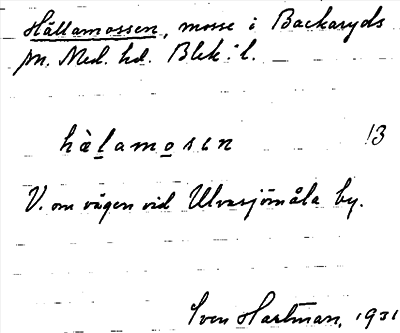 Hällamossen, mosse i Backaryds
sn. Med. hd. Blek. l.
hàlamosen 13
V. om vägen vid Ulvasjömåla by.
Sven Hartman, 1931